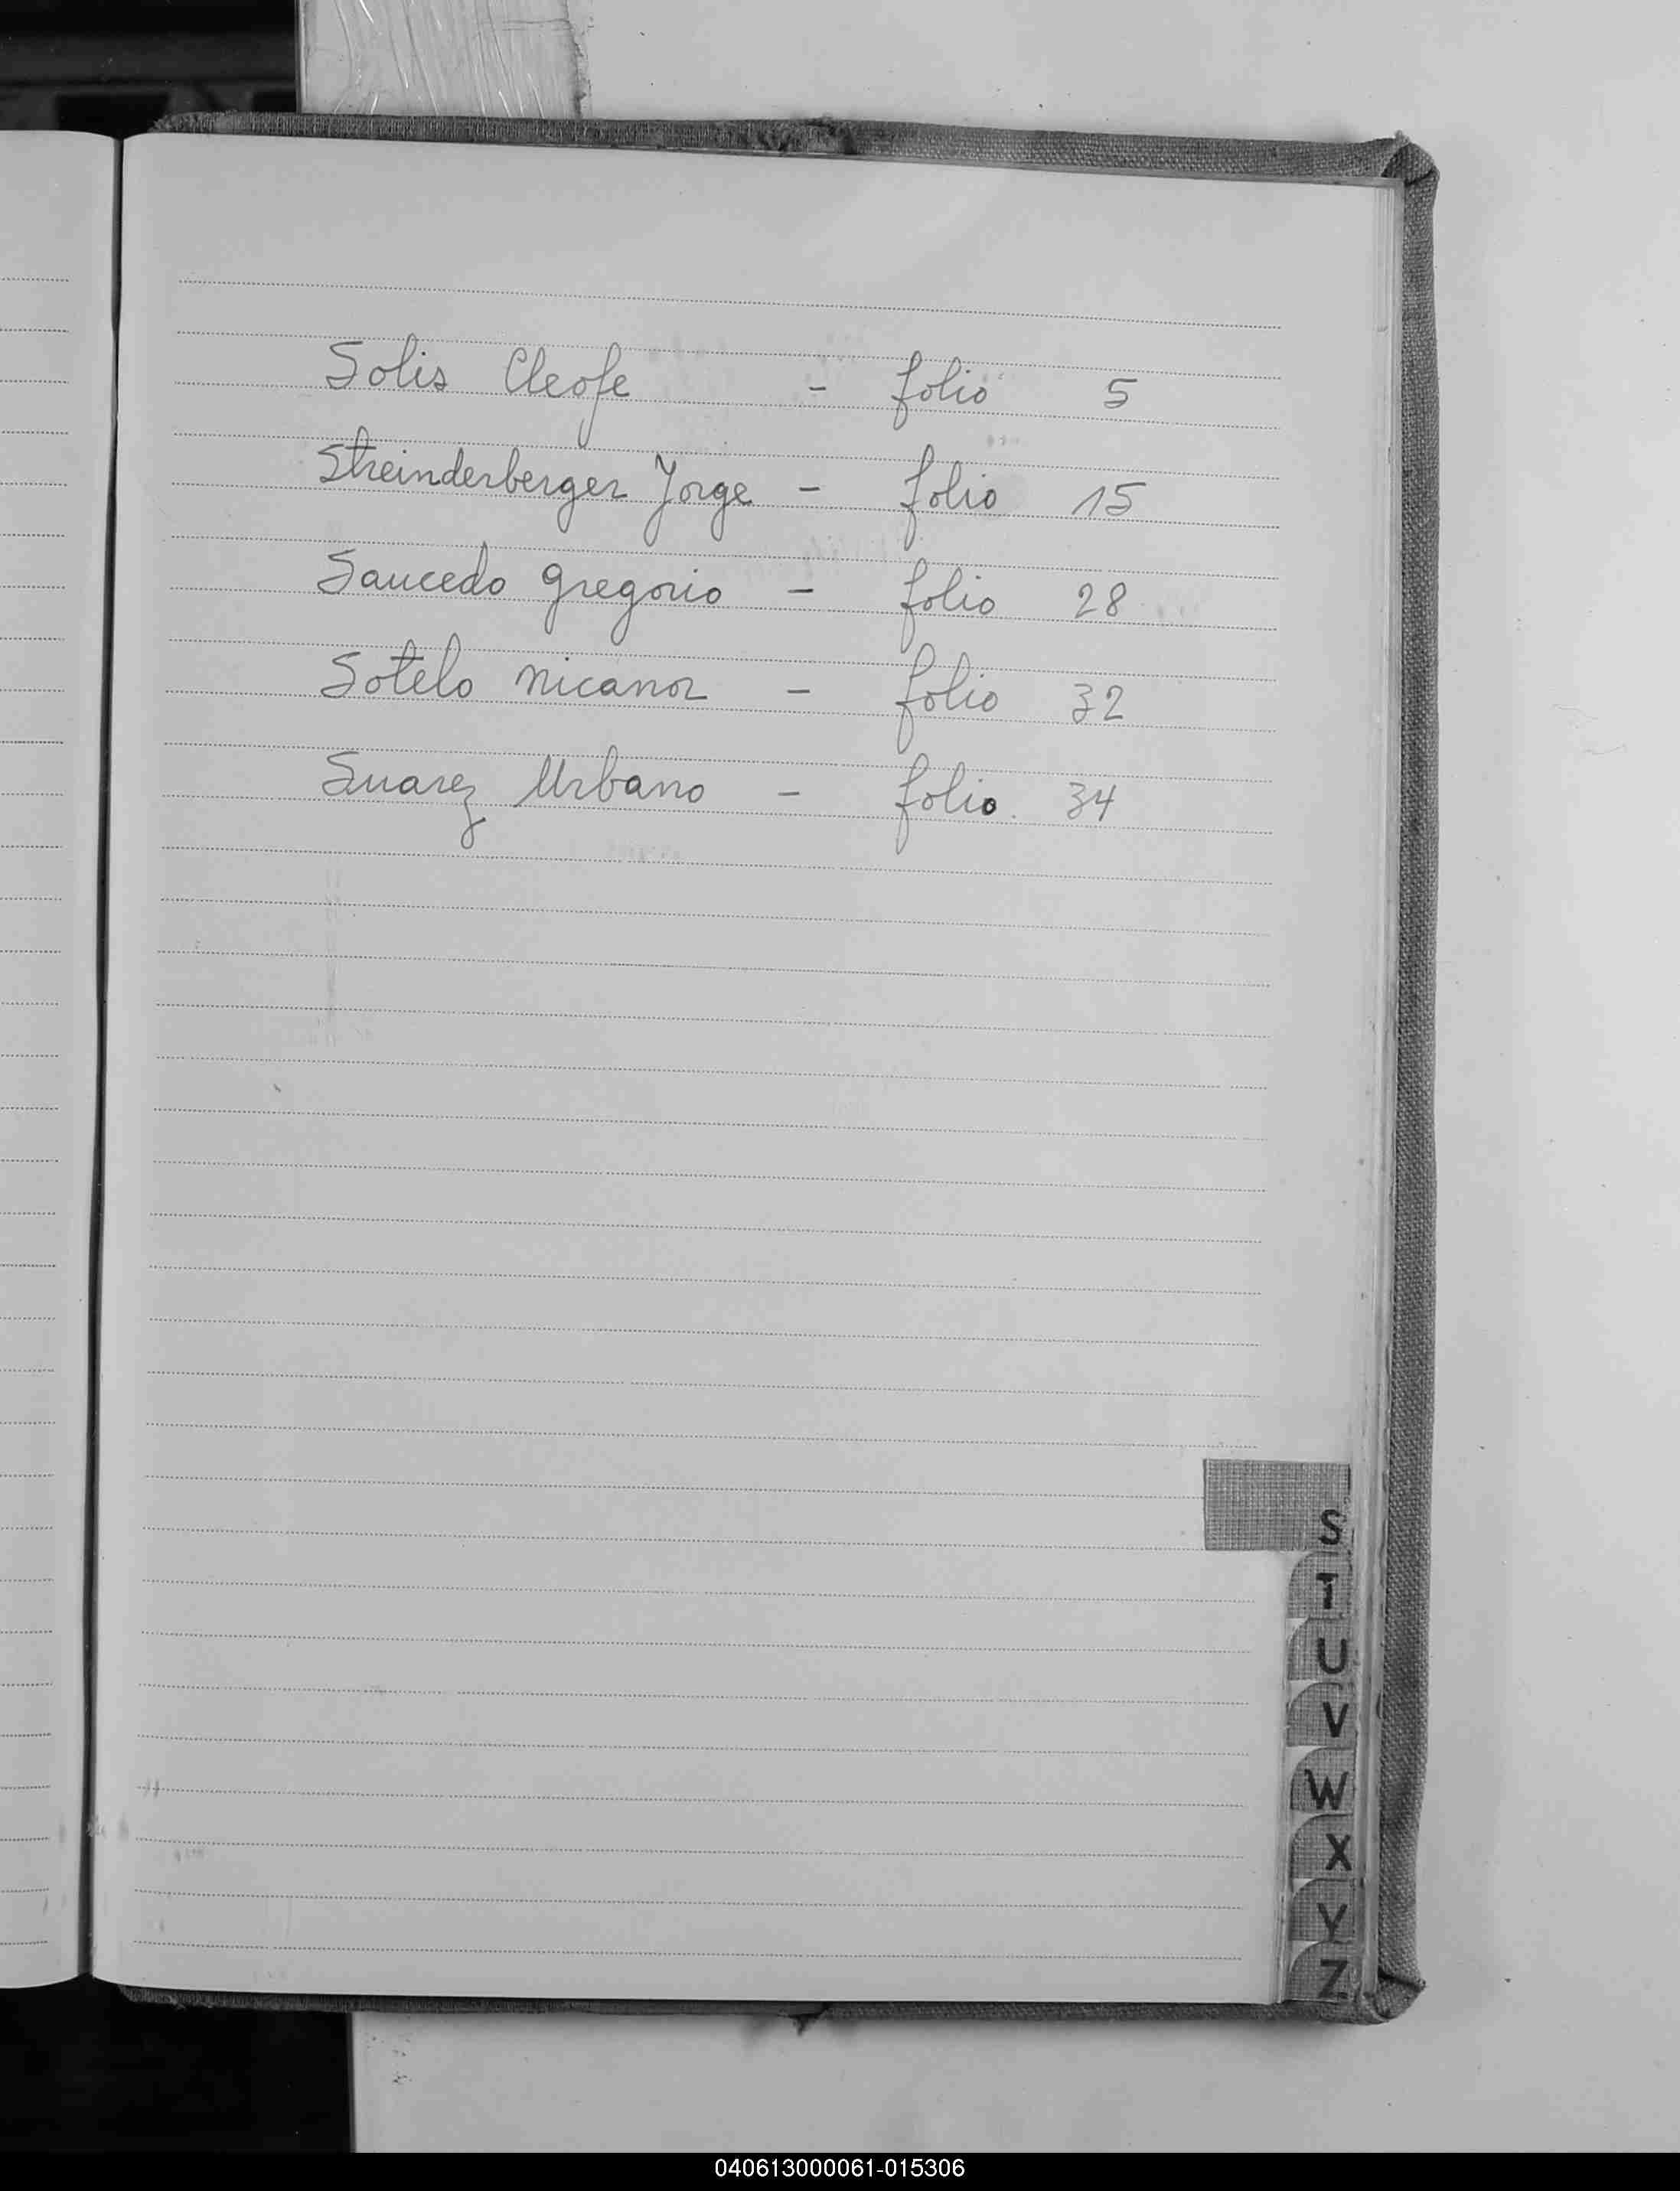 Solis Cleofe - folio 5
Streinderberger Jorge - folio 15
Saucedo Gregorio - folio 28
Sotelo Nicanor - folio 32
Suarez Urbano - folio. 34
S
T
U
V
W
X
Y
Z
040613000061-015306